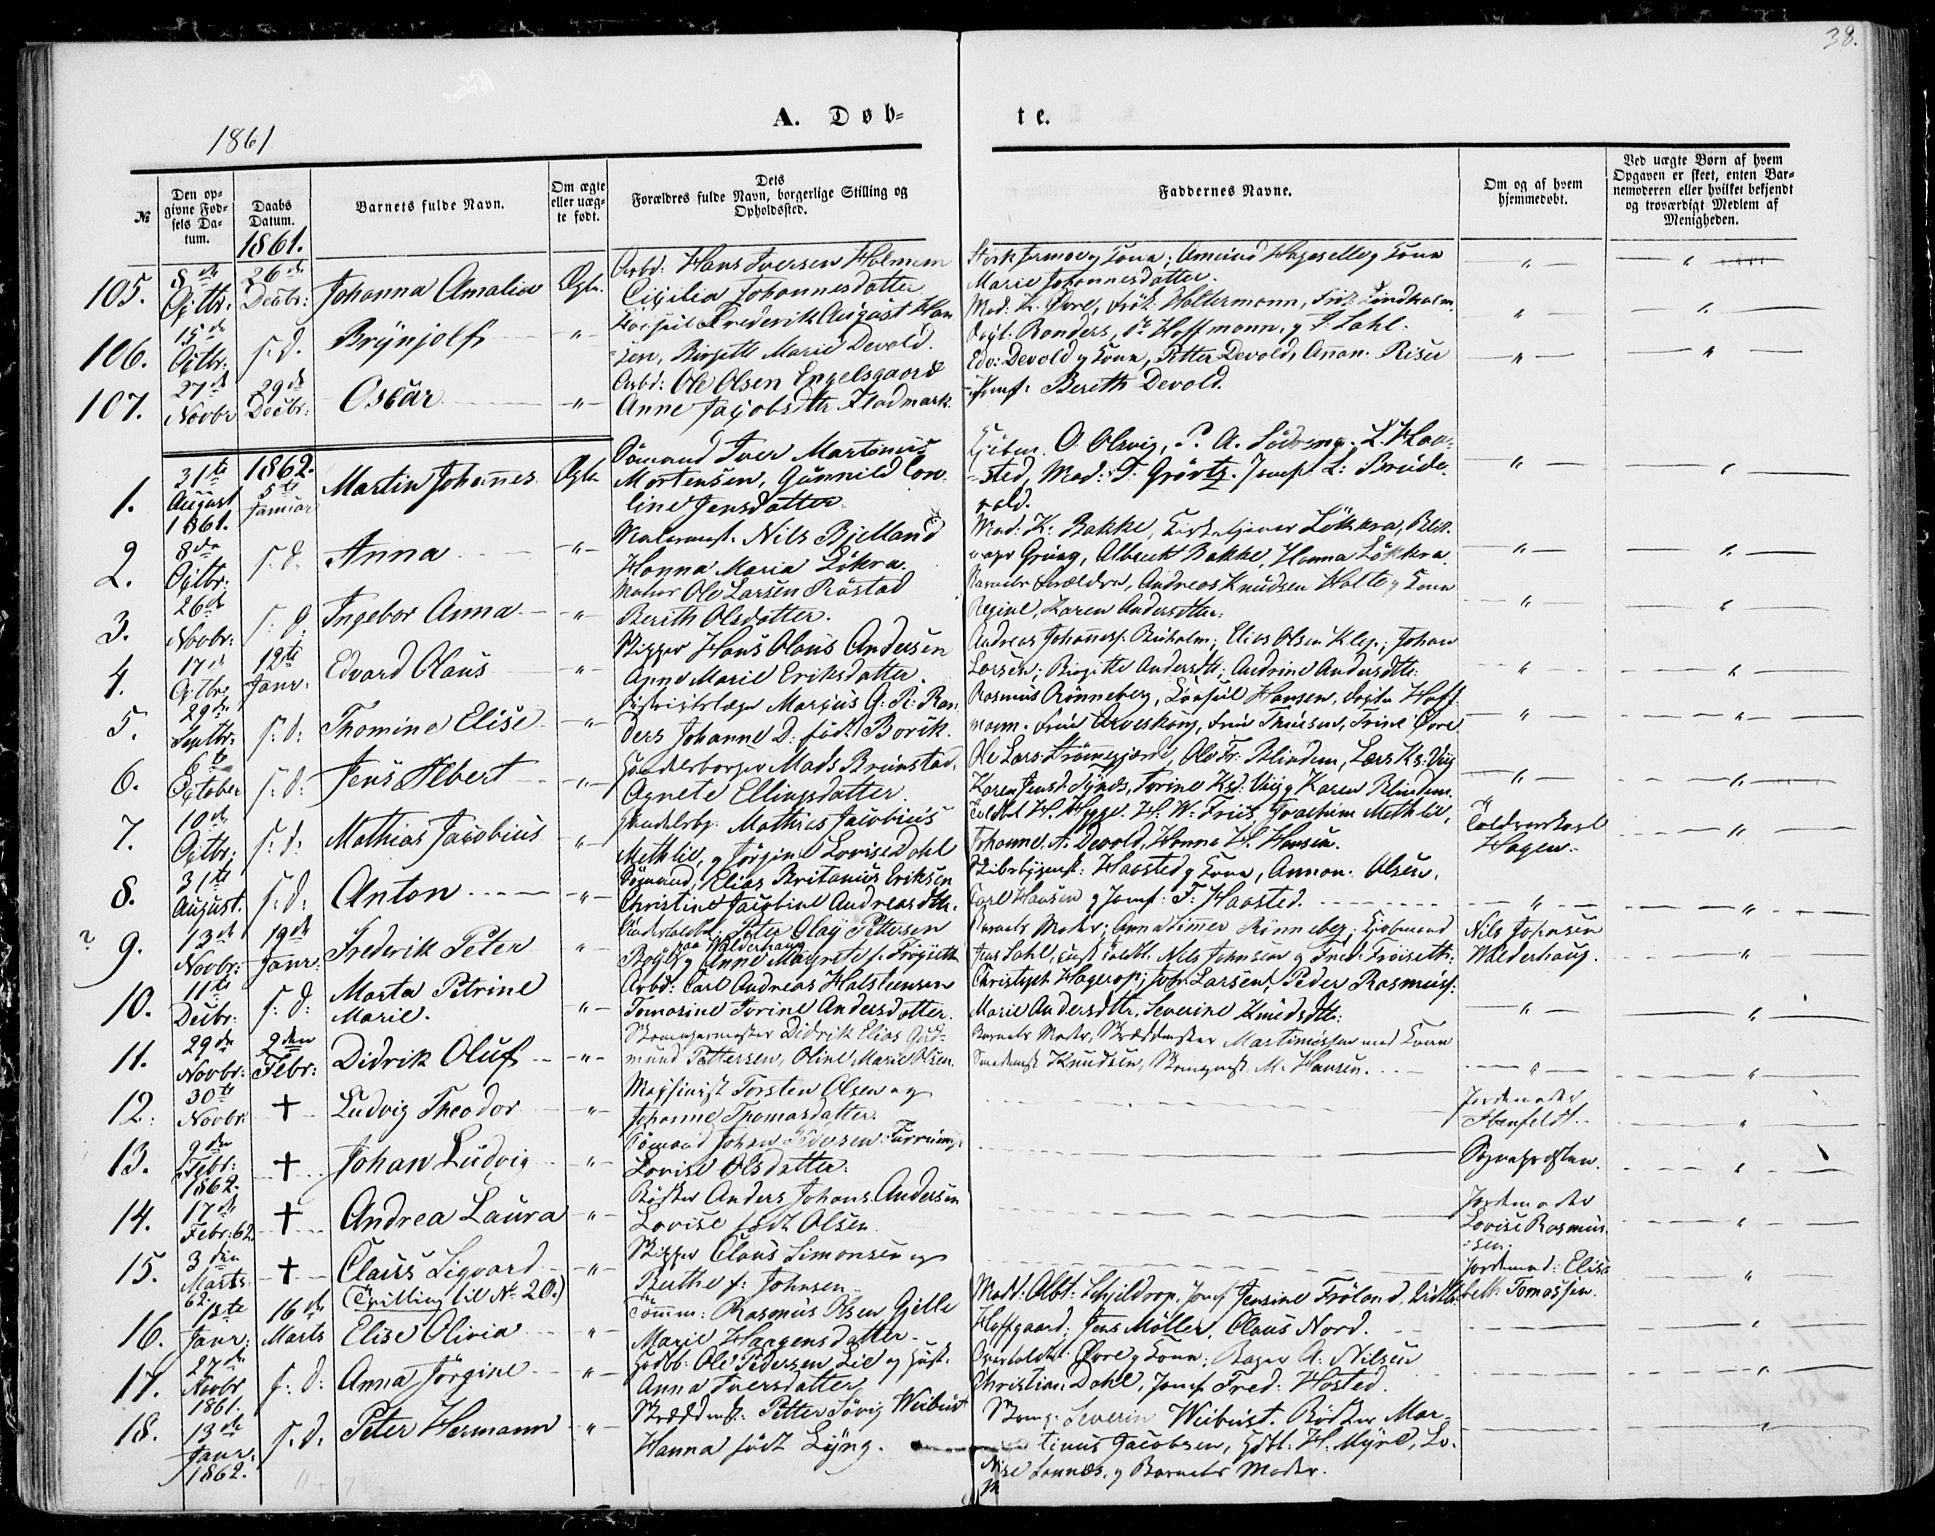 38.
A. Døb-
te.
1861
№
Den op-
givne Fød-
sels Da-
tum.
Daabs
Datum.
1861.
Barnets fulde Navn.
Om ægte
eller uæg-
te født.
Dets
Forældres fulde Navn, borgerlige Stilling og
Opholdssted.
Faddernes Navne.
Om og af hvem
hjemmedøbt.
Ved uægte Børn af hvem
Opgaven er skeet, enten Bar-
nemoderen eller hvilket bekjendt
og troværdigt Medlem af
Menigheden.
105. 8de Octbr. 26de Decbr: Johanna Amalia Ægte. Arbd: Hans Iversen Holmem
Cicilia Johannesdatter
Marie Johannesdatter.
106. 15de Octbr. s. d. Brynjolf Frederik August Han-
sen, Birgitte Marie Devold.
Mad: K. Øvre, Frøk: Woltermann, Frk: Lindholm
Fogt. Randers, Hoffmann, og J. Dahl.
107. 27de Novbr 29de Decbr: Oscar Arbd: Ole Olsen Engelsgaard
Anne Jacobsdtr Fladmark.
Edv: Devold og Kone, Petter Devold, Riser
Jomf: Bereth Devold.
1. 31te August 1861. 1862. 5te Januar Martin Johannes Ægte. Sømand Iver Martinus
Mortensen, Gunnild Caro-
line Jensdatter
O. Olsvig, P. A. Haa-
sted, Mad: T. Grørtz. Jomf: L: Brude-
vold.
2. 8de Octbr: s. d. Anna Malermst. Nils Bjelland
Hanna Maria Løkra.
Mad: K: Bakke, Kirketjener Løkkra,
Grüng, Albrecht Bakke, Hanna Løkkra
3. 26de Novbr: s. d. Ingebor Anna Ole Larsen Røstad
Berith Olsdatter.
Barnets Forældre, Andreas Knudsen Holte og Kone
Regine, Karen Andersdtter.
4. 17de Octbr. 12te Janr. Edvard Olaus Skipper Hans Olaus Andersen
Anne Marie Eriksdatter.
Andreas Johannes: Buholm; Elias Olsen Klep; Johan
Larsen; Birgitte Andersdtr; Andrine Andersdtr:
5. 29de Septbr. s: d: Thomine Elise Distriktslæge Marcus G. R: Ran-
ders Johanne D: født Borik.
Rasmus Rønneberg, Consul Hansen, Fogta Hoff-
mann. Frue Arveskoug, Frue Thuesen, Trine Øvre
6. 6te October s: d: Jens Albert Handelsborger Mads Brunstad.
Agnete Ellingsdatter
Ole Lars: Strømmegjerde, Ole Fr: Blindem, Lars Ks: Viig
Karen Jensd: Synes, Torine Ksd: Viig og Karen Blindem.
7. 10de Octbr; s: d: Mathias Jacobius Handelsbg: Mathias Jacobius
Methlie, og Jørgine Lovise Dahl
H. Hygge. H. W. Friis, Joachim Methlie,
Johanne A: Devold, Hanna H. Hansen.
Toldverksel
Hagen.
8. 31te August. s: d: Anton Sømand, Elias Britanius Eriksen
Christine Jacobine Andreasdtr.
Skibsbygmst: Haasted og Kone, Annon. Olsen,
Carl Hansen og Jomf: F: Haasted.
? 9. 13de Novbr: 19de Janr: Frederik Peter Peter Olaj Pettersen
paa Walderhaug
og Anne Magrete f: Frøyseth
Barnets Moder; Anna Simer Rønneberg: Kjøbmand
Jens Dahl, Nils Johnsen og Fred: Frøiseth:
Nils Johnsen
Walderhaug.
10. 11te Decbr: s: d: Marta Petrine
Marie.
Arbd: Carl Andreas Halstensen
Tomasine Torine Andersdatter.
Christoph Hagerop; Joh: Larsen, Peder Rasmus:
Marie Andersdtr, Severine Knudsdtr:
11. 29de Novbr: 2den Febr: Didrik Oluf Skomagermester Didrik Elias Gud-
mund Pettersen, Oline Marie Olsen.
Barnets Moder, Skreddermester Martinussen med Kone
Smedemst: Knudsen, Skomagmst: M. Hansen.
12. 30te Novbr: † Ludvig Theodor Maskinist Torsten Olsen og
Johanne Thomasdatter.
Jordemoder
Stenfeldt.
13. 9de Febr: 1862. † Johan Ludvig Sømand Johan Pedersen
Lovise Olsdatter.
Sognepræsten.
14. 17de Febr: 62. † Andrea Laura Bødker Anders Johans. Andersen
Lovise født Olsen.
Jordemoder
Lovise Rasmus-
sen.
15. 3die Marts 62. † Claus Sigvard
(Tvilling til № 20.)
Skipper Claus Simonsen og
Berthe f: Johnsen
Jordemod: Elisa-
beth Tomassen.
16. 18te Janr: 16de Marts Elise Olivia Tømm: Rasmus Olsen Gjelle
Marie Haagensdatter.
Mad: Albt: Schjeldrop. Jomf Jensine Frøland,
Hoffgaard; Jens Møller, Claus Nord.
17. 27de Novbr 1861. s: d: Anna Jørgine Ole Pedersen Lie og Hust.
Anna Iversdatter
Øvre og Kone; Bager A: Nilsen
Christian Dahl, Jomf Fred: Hosted.
18. 13de Janr: 1862. s. d. Peter Hermann Skreddmst: Petter Søvig Weibust
Hanna født Lyng.
Skomg: Severin Weibust. Bødker Mar-
tinus Jacobsen, H. Myre, Lo-
vise Sannæs, og Barnets Moder.